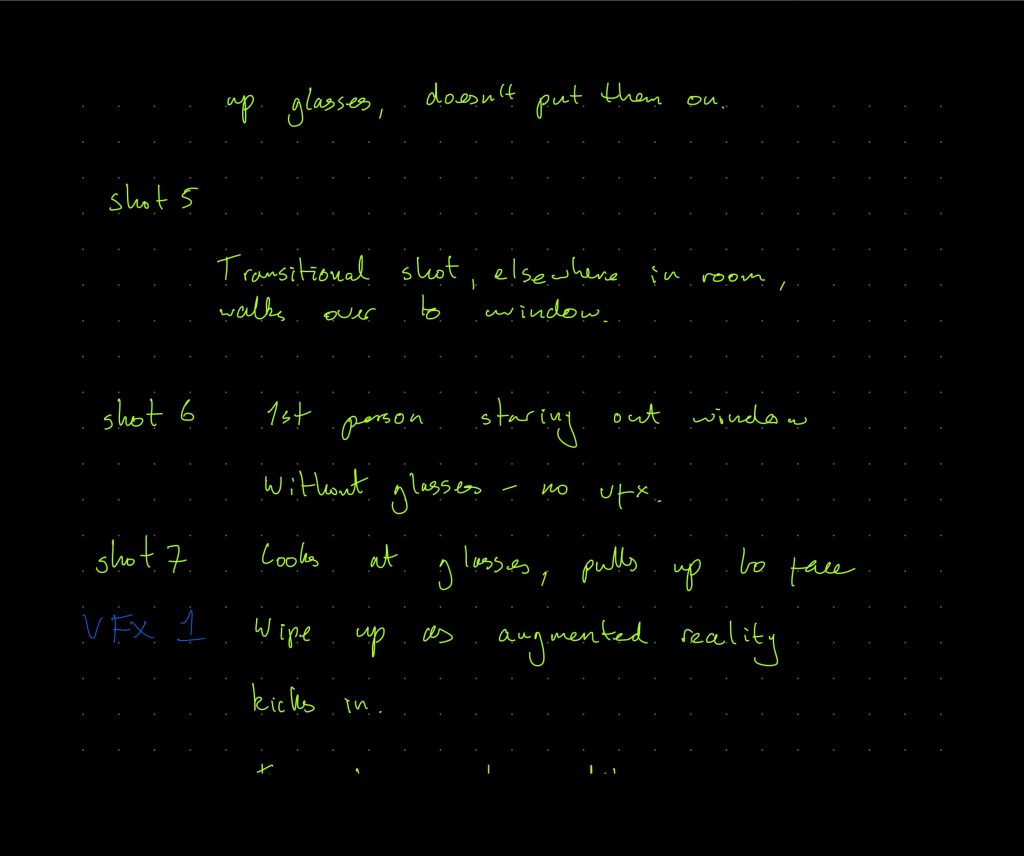 up glasses, doesn't put them on.
shot 5
Transitional shot, elsewhere in room,
walks over to window.
shot 6 1st person staring out window
Without glasses - no vfx.
shot 7 Looks at glasses, pulls up to face
VFX 1 Wipe up as augmented reality
kicks in.